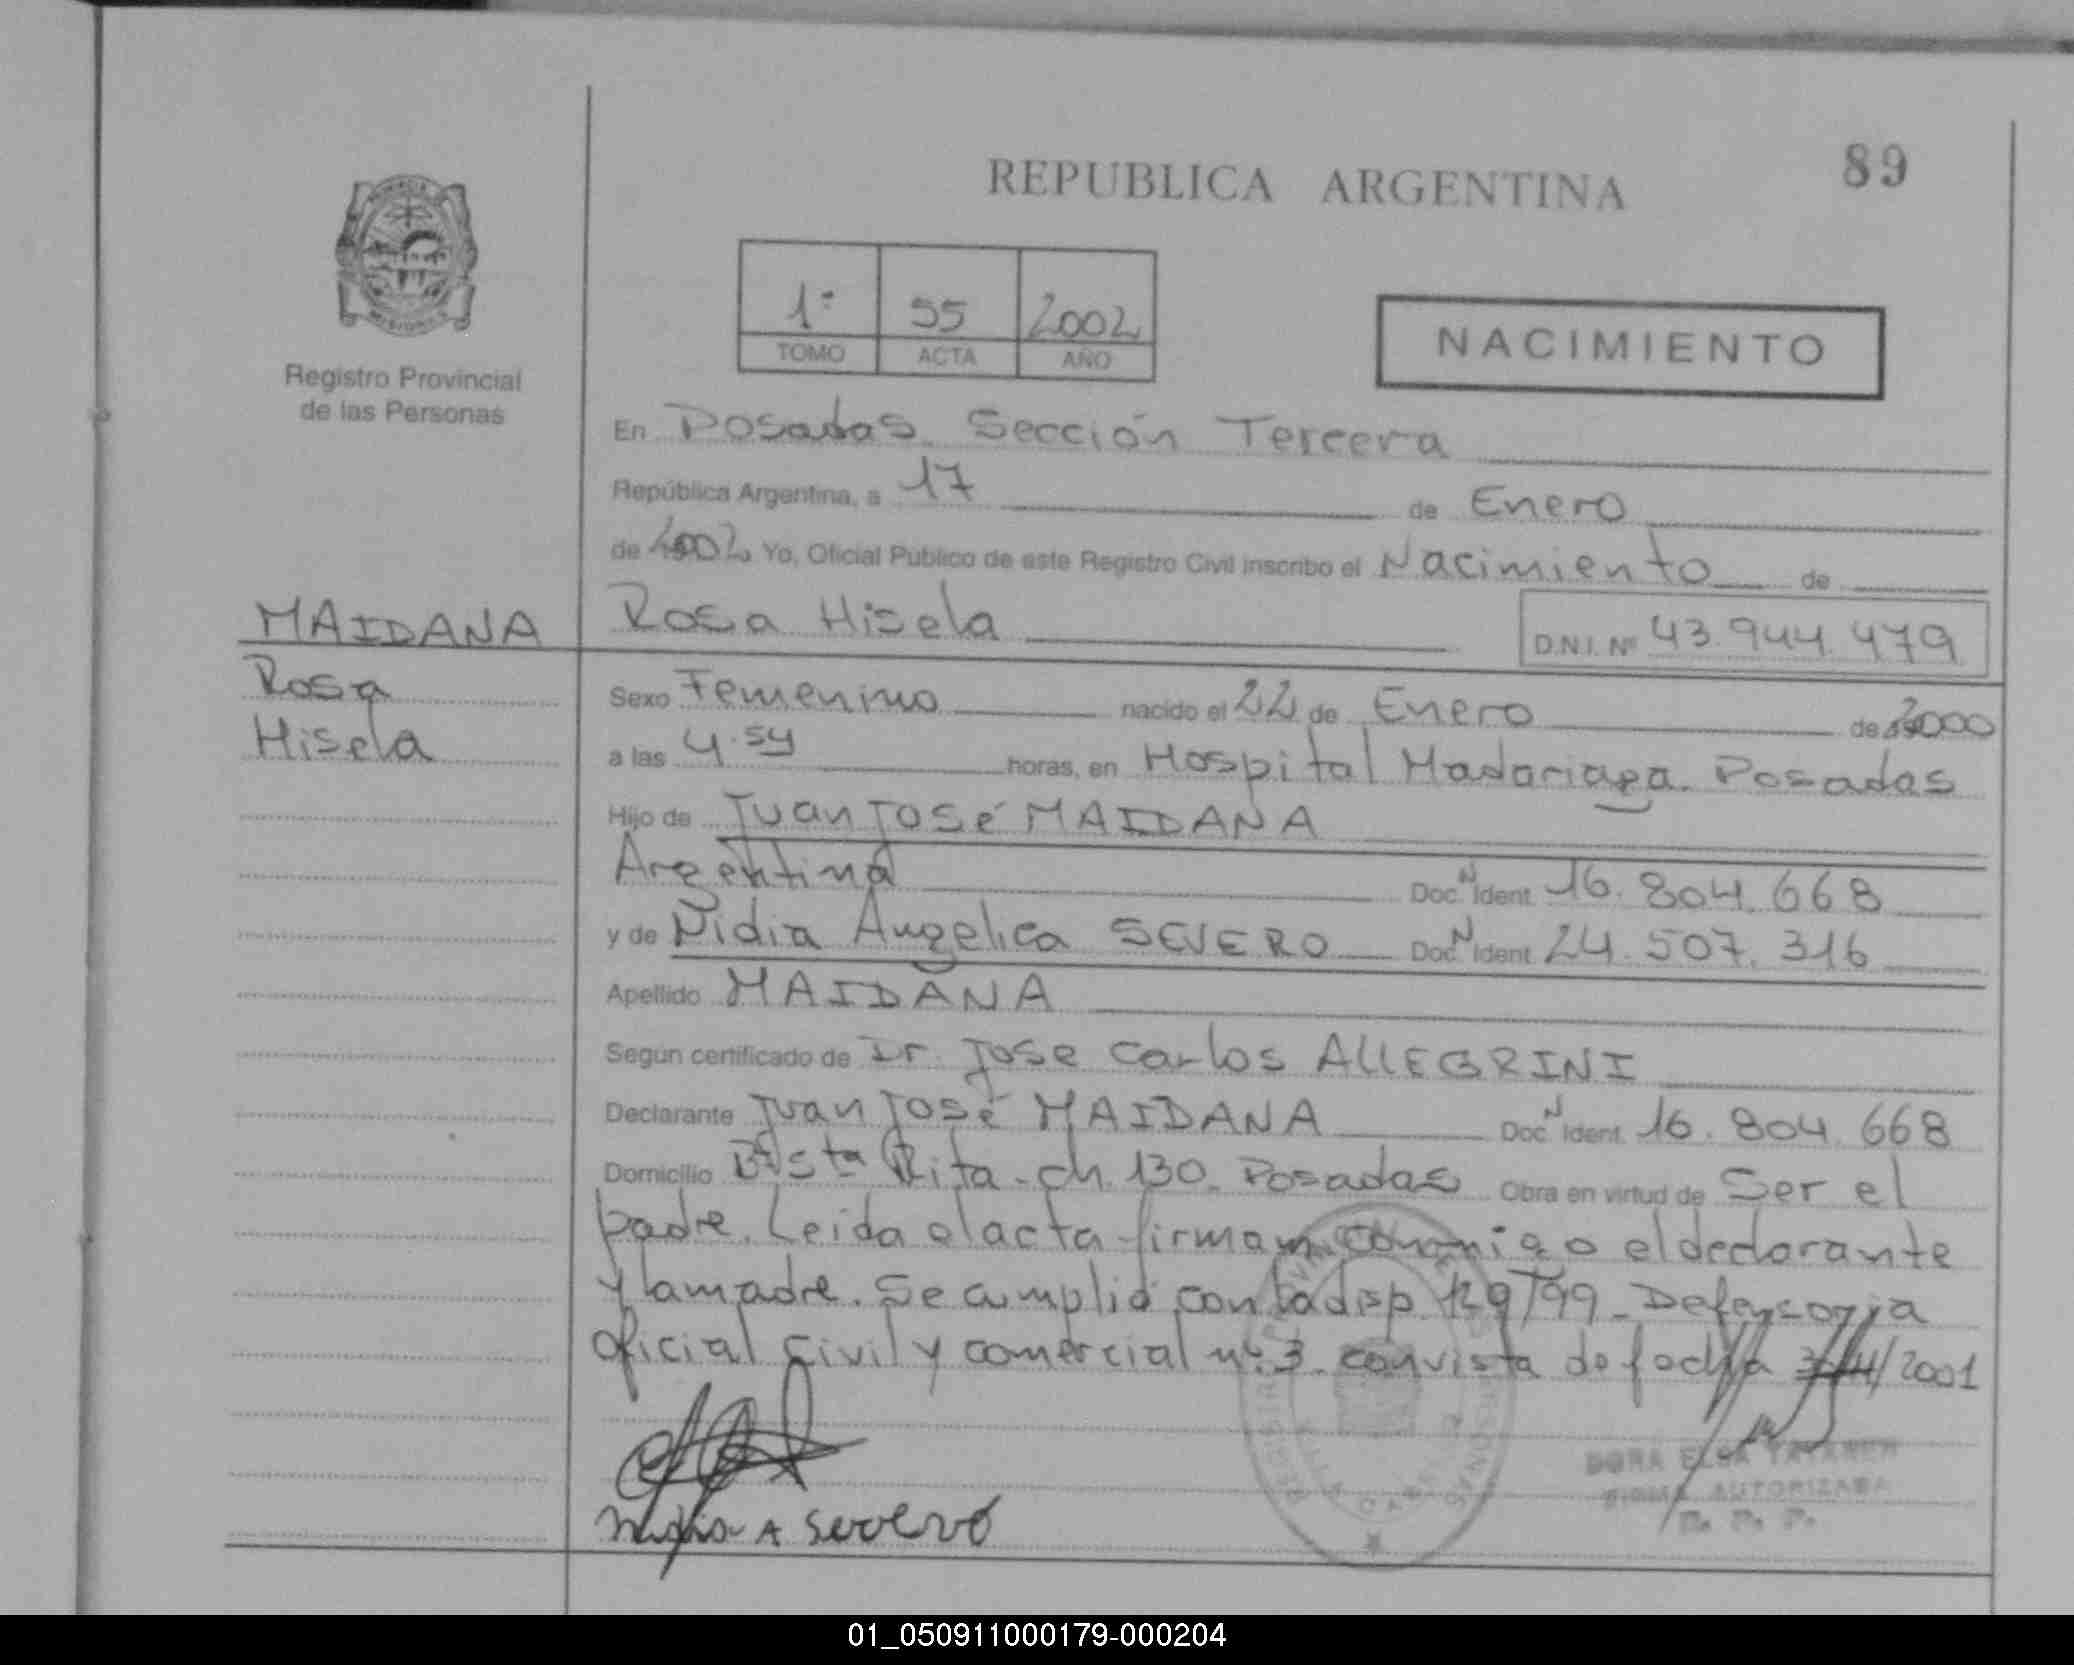 REPUBLICA ARGENTINA
89
1º 55 2002
TOMO ACTA AÑO
NACIMIENTO
Registro Provincial
de las Personas
En Posadas Sección Tercera
República Argentina, a 17 de Enero
de 2002 Yo, Oficial Público de este Registro Civil inscribo el Nacimiento de
MAIDANA
Rosa
Hisela
Rosa Hisela D.N.I. Nº 43.944.479
Sexo Femenino nacido el 22 de Enero de 2000
a las 4.54 horas, en Hospital Madariaga. Posadas
Hijo de Juan José MAIDANA
Argentina Doc. N Ident. 16.804.668
y de Nidia Angelica SEVERO Doc. N Ident. 24.507.316
Apellido MAIDANA
Según certificado de Dr. Jose Carlos ALLEGRINI
Declarante Juan José MAIDANA Doc. N Ident. 16.804.668
Domicilio Bº Sta Rita - ch. 130. Posadas Obra en virtud de Ser el
padre. Leida el acta firman conmigo el declarante
y la madre. Se cumplió con la disp. 129/99 - Defensoria
oficial Civil y comercial nº 3 con vista de fecha /2001
Nidia A Severo
DORA ELSA
FIRMA AUTORIZADA
R. P. P.
01_050911000179-000204